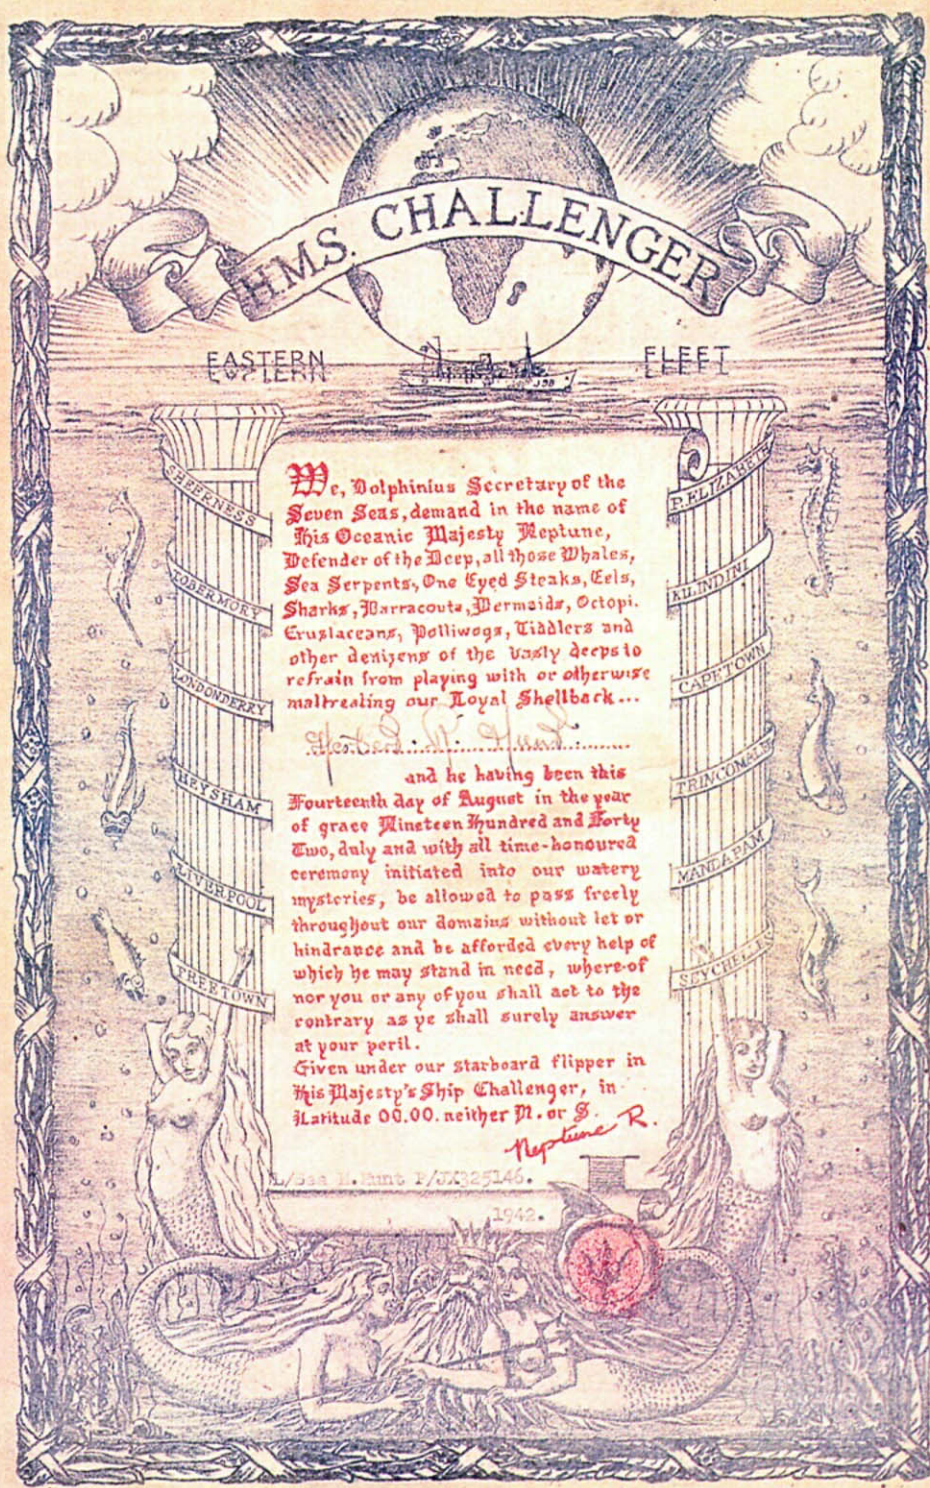 H.M.S. CHALLENGER
EASTERN FLEET
SHEERNESS
TOBERMORY
LONDONDERRY
HEYSHAM
LIVERPOOL
FREETOWN
We, Dolphinius Secretary of the
Seven Seas, demand in the name of
His Oceanic Majesty Neptune,
Defender of the Deep, all those Whales,
Sea Serpents, One Eyed Steaks, Eels,
Sharks, Barracouta, Mermaids, Octopi.
Crustaceans, Polliwogs, Tiddlers and
other denizens of the vasty deeps to
refrain from playing with or otherwise
maltreating our Loyal Shellback...
Hunt
and he having been this
Fourteenth day of August in the year
of grace Nineteen Hundred and Forty
Two, duly and with all time-honoured
ceremony initiated into our watery
mysteries, be allowed to pass freely
throughout our domains without let or
hindrance and be afforded every help of
which he may stand in need, where-of
nor you or any of you shall act to the
contrary as ye shall surely answer
at your peril.
Given under our starboard flipper in
His Majesty's Ship Challenger, in
Latitude 00.00. neither N. or S.
Neptune R.
L/Sea H.Hunt P/JX325146.
1942.
P. ELIZABETH
KILINDINI
CAPETOWN
TRINCOMALEE
MANDAPAM
SEYCHELLES
J98